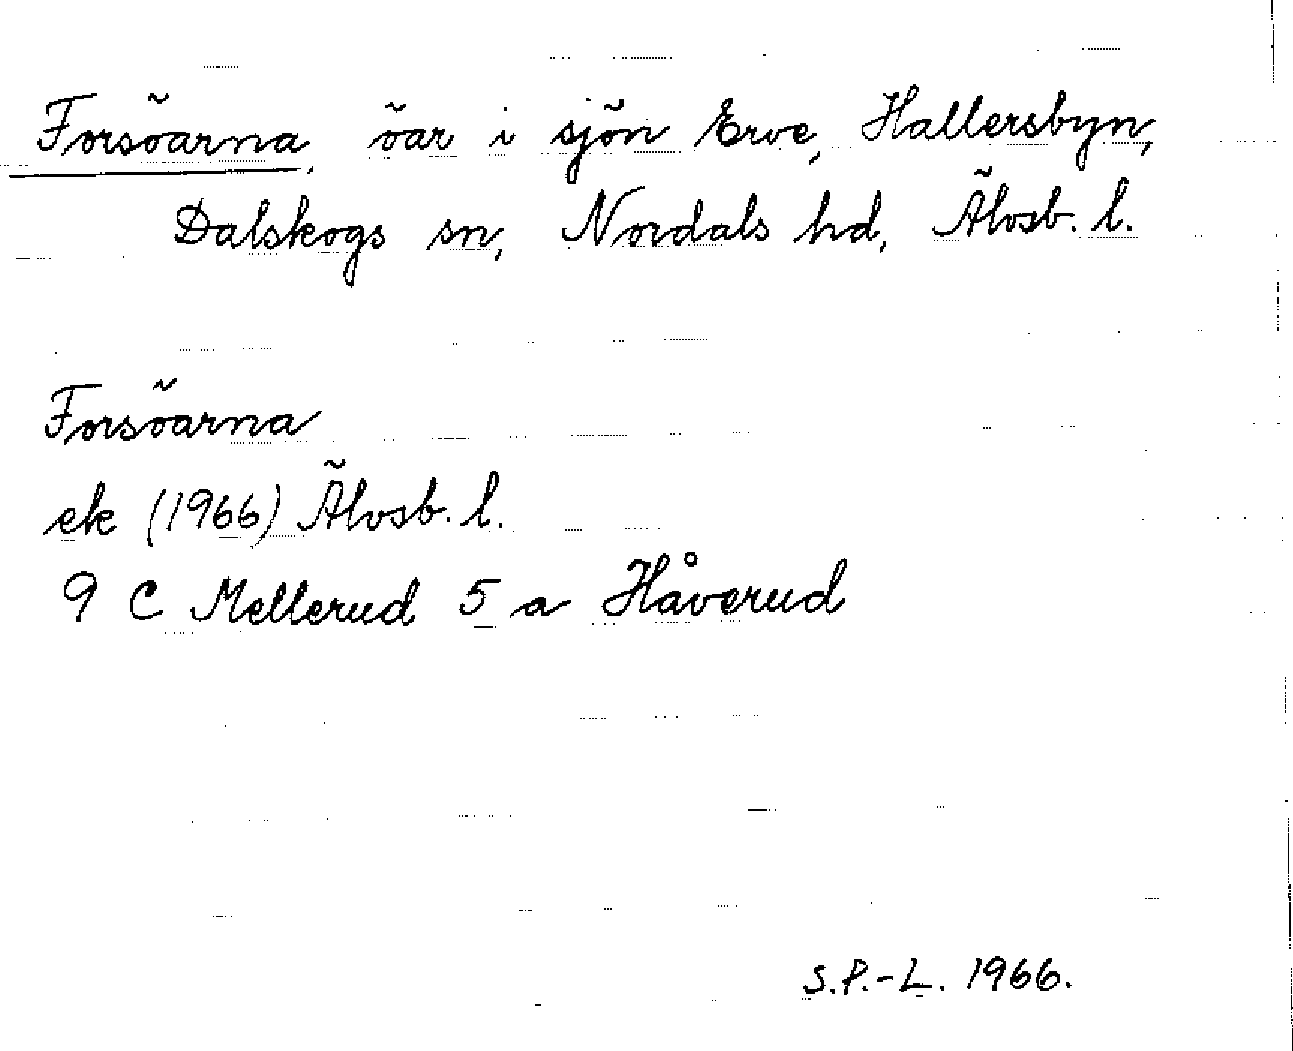 Forsöarna, öar i sjön Erve, Hallersbyn,
Dalskogs sn, Nordals hd, Älvsb. l.
Forsöarna
ek (1966) Älvsb. l.
9 C Mellerud 5 a Håverud
S.P.-L. 1966.